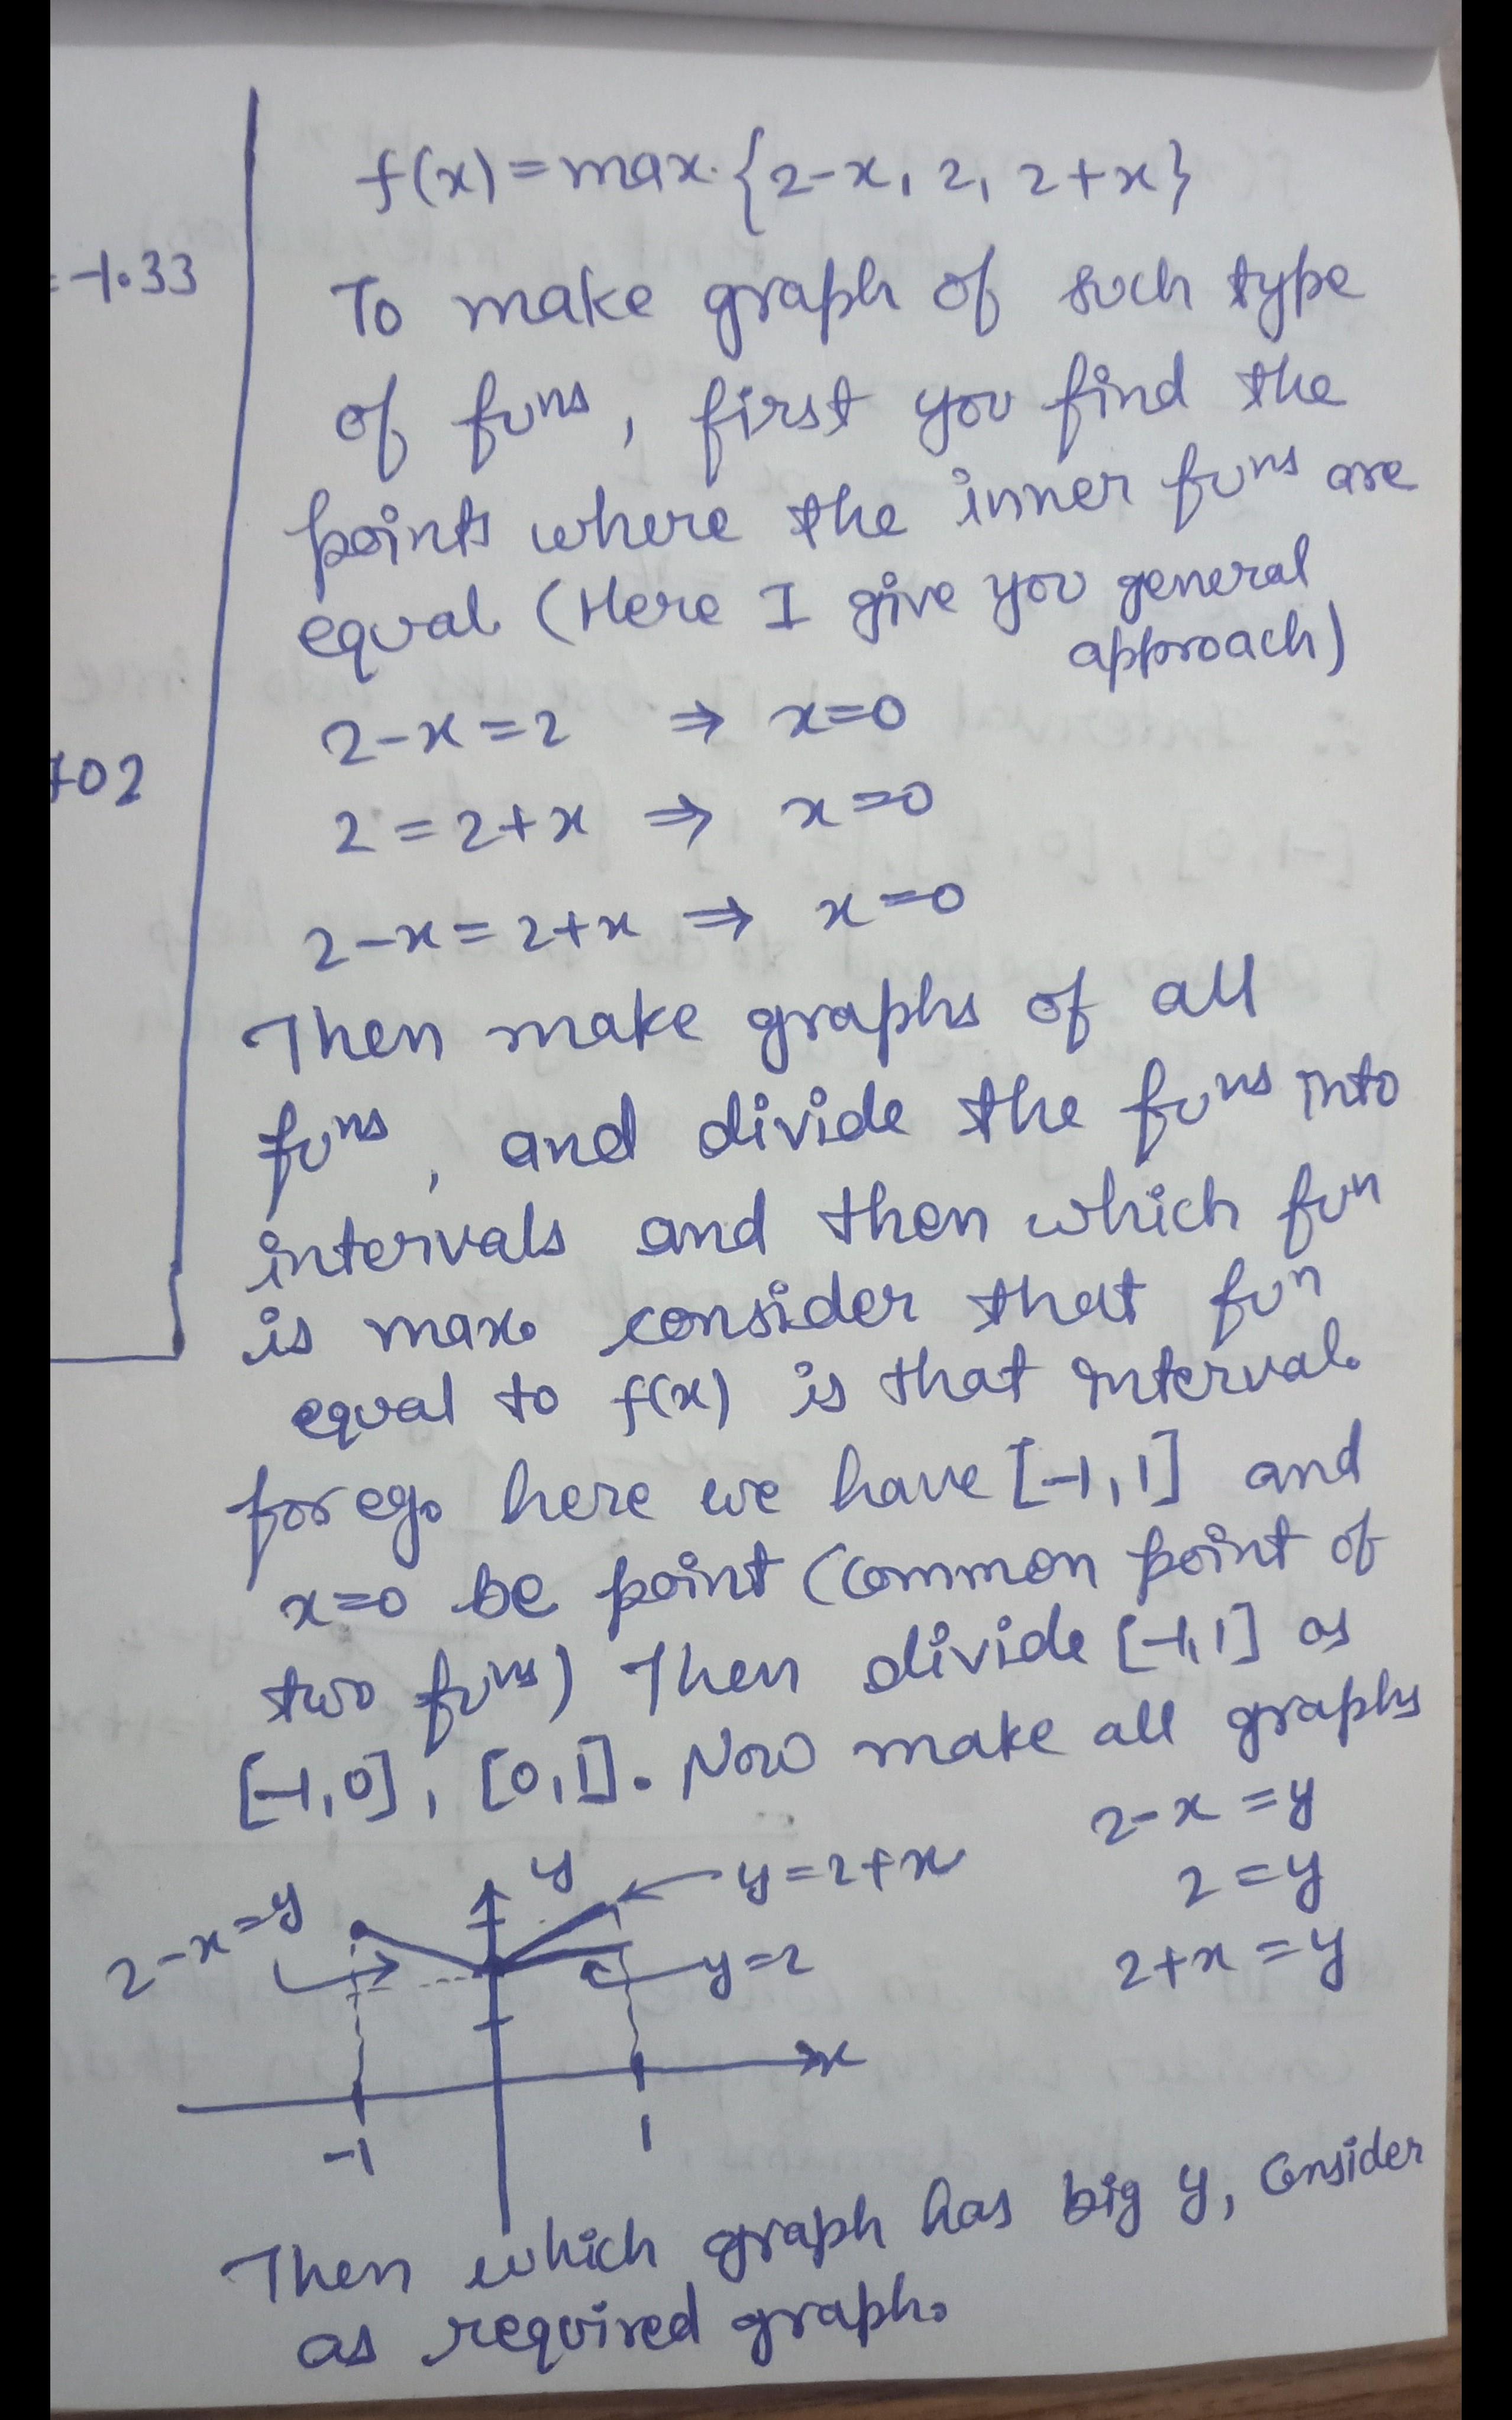 f(x) = max. {2-x, 2, 2+x}
= -1.33
To make graph of such type
of fuⁿˢ, first you find the
points where the inner fuⁿˢ are
equal (Here I give you general
approach)
2-x = 2 ⇒ x=0
702
2 = 2+x ⇒ x=0
2-x = 2+x ⇒ x=0
Then make graphs of all
fuⁿˢ, and divide the fuⁿˢ into
intervals and then which fuⁿ
is max. consider that fuⁿ
equal to f(x) is that interval.
for eg. here we have [-1,1] and
x=0 be point (common point of
two fuⁿˢ) Then divide [-1,1] as
[-1,0], [0,1]. Now make all graphs
2-x = y
2 = y
2+x = y
y
y=2+x
2-x=y
y=2
x
-1
1
Then which graph has big y, Consider
as required graph.